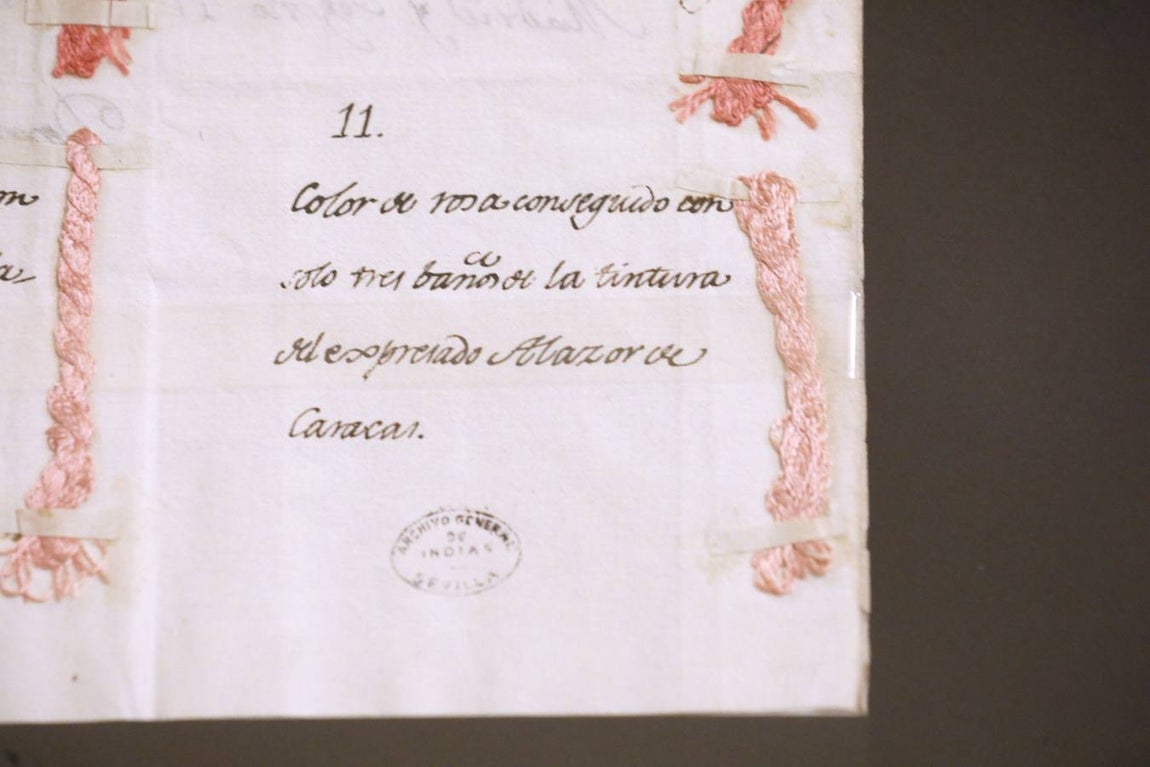 11.
Color de rosa conseguido con
solo tres baños de la tintura
del expresado Alazor de
Caracas.
ARCHIVO GENERAL
DE
INDIAS
SEVILLA